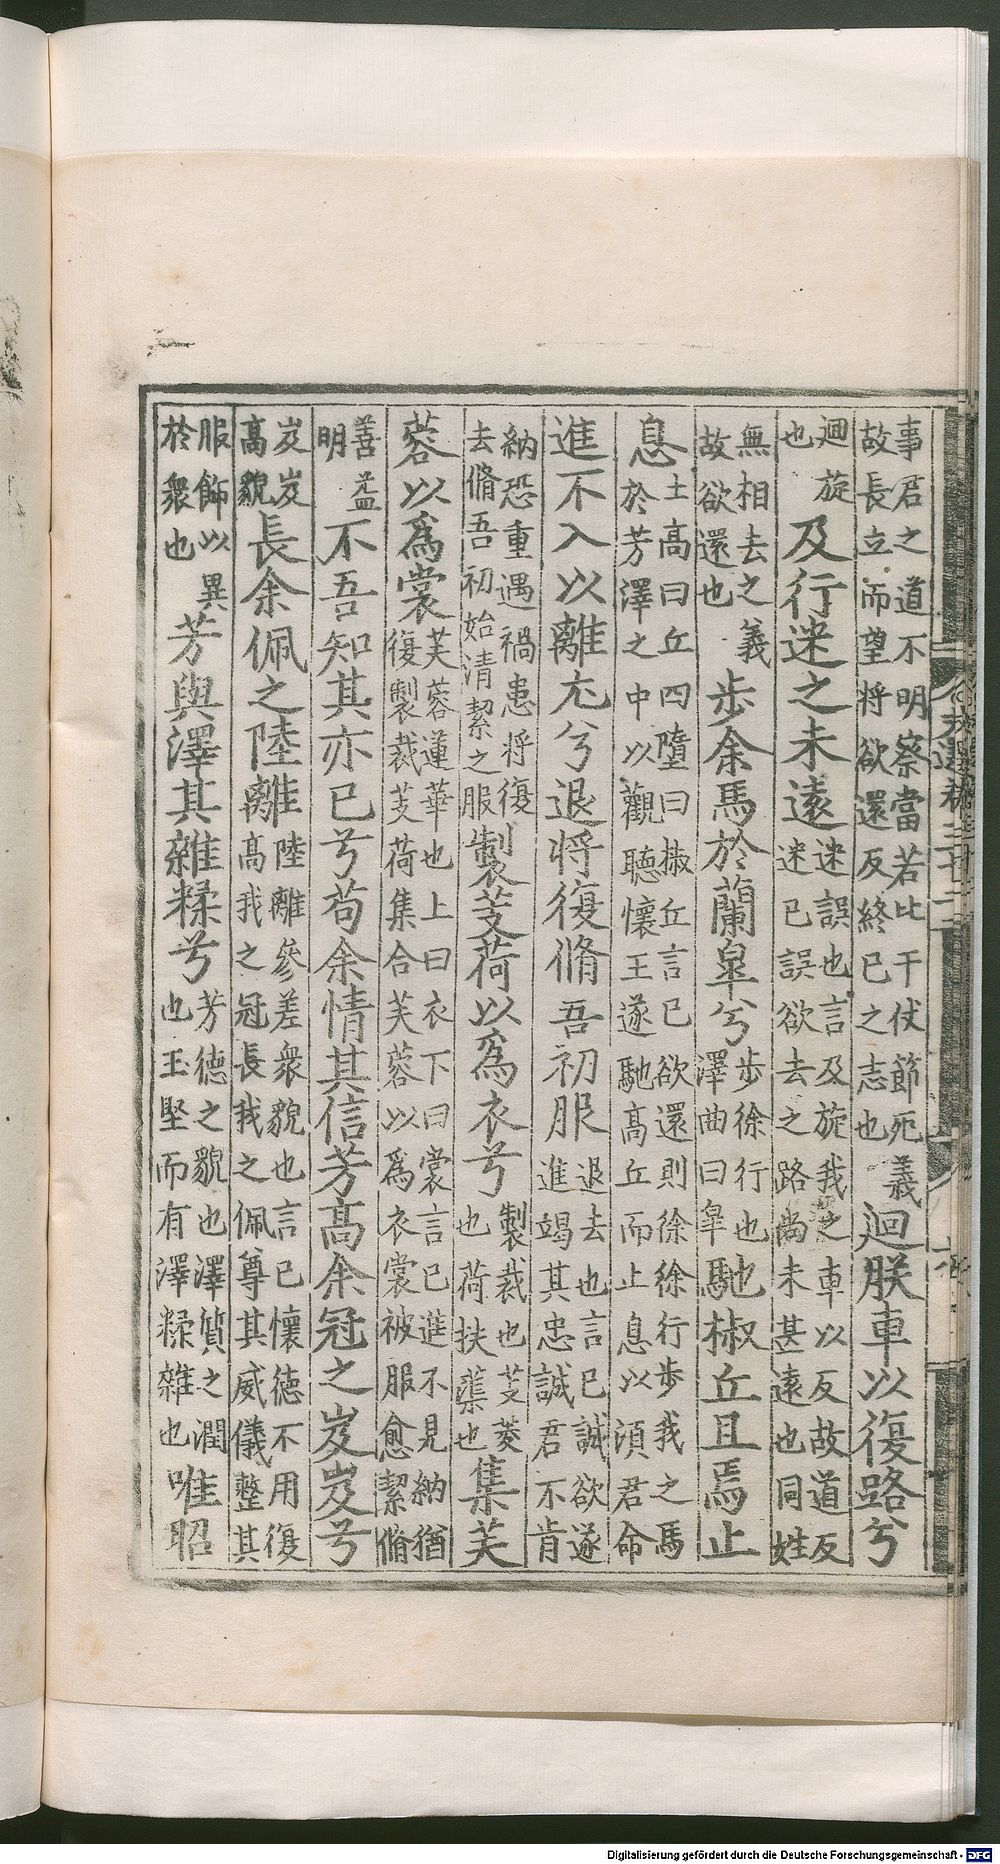 事君之道不明察當若比干仗節死義
故長立而望將欲還反終己之志也
迴朕車以復路兮
迴旋
也
及行迷之未遠
迷誤也言及旋我之車以反故道反
迷己誤欲去之路尚未甚遠也同姓
無相去之義
故欲還也
步余馬於蘭皐兮
步徐行也
澤曲曰皐
馳椒丘且焉止
息
土高曰丘四墮曰椒丘言己欲還則徐徐行步我之馬
於芳澤之中以觀聽懷王遂馳高丘而止息以湏君命
進不入以離尤兮退將復脩吾初服
退去也言己誠欲遂
進竭其忠誠君不肯
納恐重遇禍患將復
去脩吾初始清絜之服
製芰荷以爲衣兮
製裁也芰菱
也荷扶蕖也
集芙
蓉以爲裳
芙蓉蓮華也上曰衣下曰裳言己進不見納猶
復製裁芰荷集合芙蓉以爲衣裳被服愈絜脩
善益
明
不吾知其亦已兮苟余情其信芳高余冠之岌岌兮
岌岌
高貌
長余佩之陸離
陸離參差衆貌也言己懷德不用復
高我之冠長我之佩尊其威儀整其
服飾以異
於衆也
芳與澤其雜糅兮
芳德之貌也澤質之潤
也玉堅而有澤糅雜也
唯昭
Digitalisierung gefördert durch die Deutsche Forschungsgemeinschaft - DFG